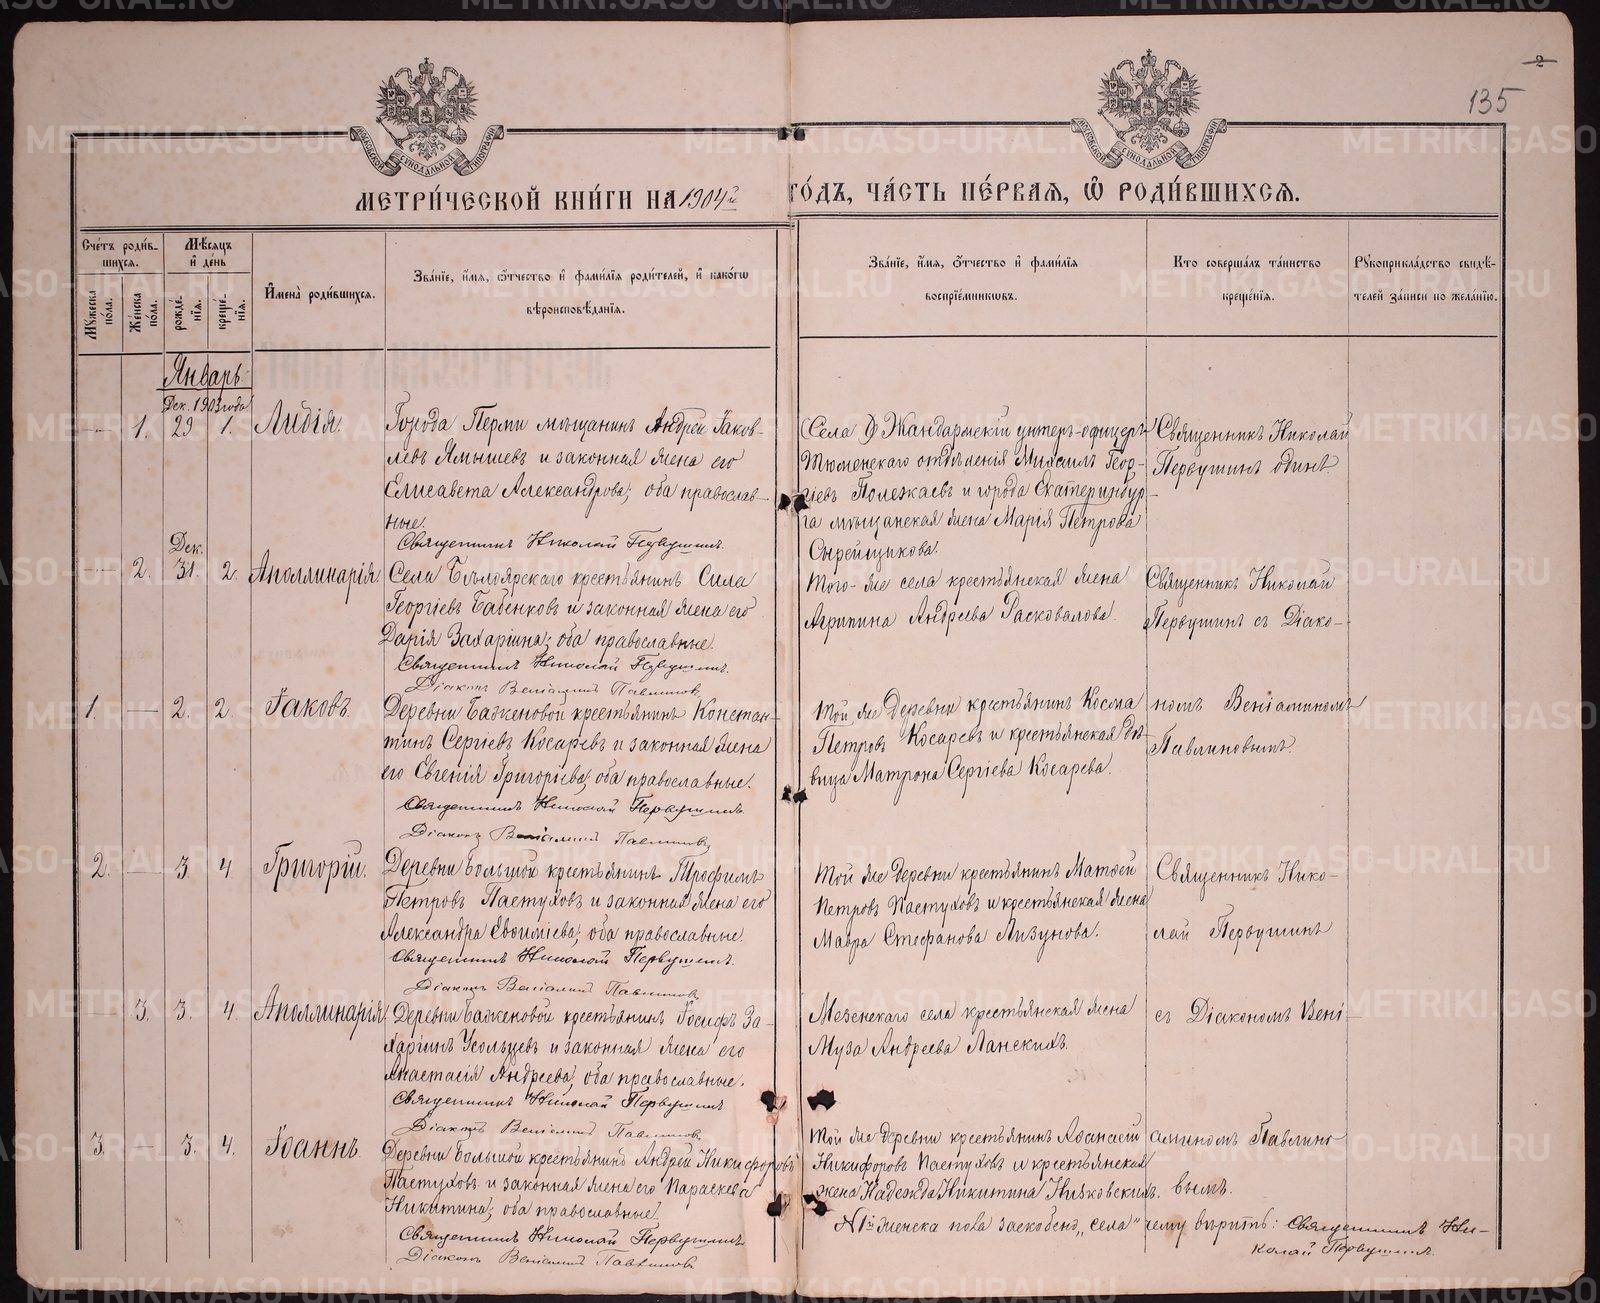 135
МЕТРИЧЕСКОЙ КНИГИ НА 1904й ГОДЪ, ЧАСТЬ ПЕРВАЯ, Ѡ РОДИВШИХСЯ.
Счетъ родив-
шихся.
Мужеска пола.
Женска пола.
Мѣсяцъ и день
рожденія.
крещенія.
Имена родившихся.
Званіе, имя, отчество и фамилія родителей, и какогѡ
вѣроисповѣданія.
Званіе, имя, отчество и фамилія
воспріемникѡвъ.
Кто совершалъ таинство
крещенія.
Рукоприкладство свидѣ-
телей записи по желанію.
Январь
Дек. 1903 года
— 1. 29 1. Лидія.
Города Перми мѣщанинъ Андрей Іаков-
левъ Ямышевъ и законная жена его
Елисавета Александрова; оба православ-
ные.
Священникъ Николай Первушинъ.
Села Жандармскій унтеръ-офицеръ
Тюменскаго отдѣленія Михаилъ Геор-
гіевъ Полежаевъ и города Екатеринбур-
га мѣщанская жена Марія Петрова
Сырейщикова.
Священникъ Николай
Первушинъ одинъ
Дек.
— 2. 31. 2. Аполлинарія
Села Бѣлоярскаго крестьянинъ Сила
Георгіевъ Бабенковъ и законная жена его
Дарія Захаріина; оба православные.
Священникъ Николай Первушинъ.
Діаконъ Веніаминъ Павлиновъ.
Того-же села крестьянская жена
Агрипина Андреева Расковалова.
Священникъ Николай
Первушинъ съ Діако-
1. — 2. 2. Іаковъ.
Деревни Баженовой крестьянинъ Констан-
тинъ Сергіевъ Косаревъ и законная жена
его Евгенія Григоріева; оба православные.
Священникъ Николай Первушинъ.
Діаконъ Веніаминъ Павлиновъ.
Той же деревни крестьянинъ Косма
Петровъ Косаревъ и крестьянская дѣ-
вица Матрона Сергіева Косарева.
номъ Веніаминомъ
Павлиновымъ.
2. — 3. 4. Григорій.
Деревни Большой крестьянинъ Трофимъ
Петровъ Пастуховъ и законная жена его
Александра Евѳиміева; оба православные.
Священникъ Николай Первушинъ.
Діаконъ Веніаминъ Павлиновъ
Той же деревни крестьянинъ Матѳей
Петровъ Пастуховъ и крестьянская жена
Мавра Стефанова Лизунова.
Священникъ Нико-
лай Первушинъ
— 3. 3. 4. Аполлинарія.
Деревни Баженовой крестьянинъ Іосифъ За-
харіинъ Усольцевъ и законная жена его
Анастасія Андреева; оба православные.
Священникъ Николай Первушинъ
Діаконъ Веніаминъ Павлиновъ.
Мезенскаго села крестьянская жена
Муза Андреева Ланскихъ.
съ Діакономъ Вені-
3. — 3. 4. Іоаннъ.
Деревни Большой крестьянинъ Андрей Никифоровъ
Пастуховъ и законная жена его Параскева
Никитина; оба православные.
Священникъ Николай Первушинъ.
Діаконъ Веніаминъ Павлиновъ
Той же деревни крестьянинъ Аѳанасій
Никифоровъ Пастуховъ и крестьянская
жена Надежда Никитина
аминомъ Павлино-
вымъ.
№ 1й женска пола заскоблено „села" чему вѣрить: Священникъ Ни-
колай Первушинъ.
METRIKI.GASO-URAL.RU